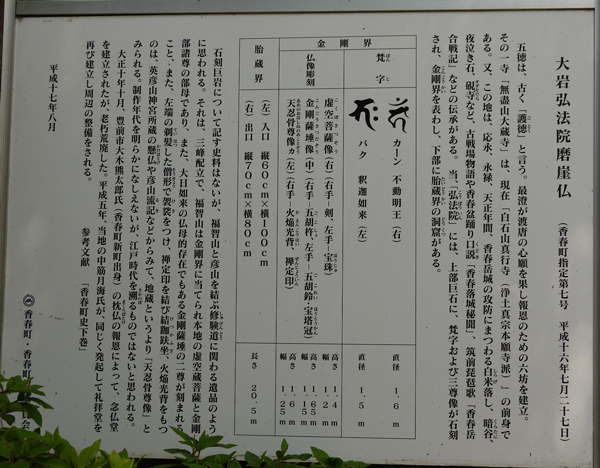 大岩弘法院磨崖仏
（香春町指定第七号　平成十六年七月二十七日）
五徳は、古く「護徳」と言う。最澄が渡唐の心願を果し報恩のための六坊を建立。
その一寺「無盡山大蔵寺」は、現在「白石山真行寺（浄土真宗本願寺派）」の前身で
ある。又、この地は、応永、永禄、天正年間、香春岳城の攻防にまつわる白米落し、暗谷、
夜泣き石、硯寺など、古戦場物語や香春盆踊り口説「香春落城秘聞」、筑前琵琶歌「香春岳
合戦記」などの伝承がある。当、「弘法院」には、上部巨石に、梵字および三尊像が石刻
され、金剛界を表わし、下部に胎蔵界の洞窟がある。
金剛界
梵字
カーン　不動明王（右）
直径　１．６ｍ
バク　釈迦如来（左）
直径　１．５ｍ
仏像彫刻
虚空菩薩像（右）（右手－剣、左手－宝珠）
高さ　１．４ｍ
幅　１．２ｍ
金剛薩埵像（中）（右手－五胡杵、左手－五胡鈴・宝塔冠）
高さ　１．６５ｍ
幅　１．１５ｍ
天忍骨尊像ヵ（左）（右手－火焔光背、禅定印）
高さ　１．６ｍ
幅　１．２５ｍ
胎蔵界
（右）入口　縦６０ｃｍ×横１００ｃｍ
（左）出口　縦７０ｃｍ×横８０ｃｍ
長さ　２０．５ｍ
石刻巨岩について記す史料はないが、福智山と彦山を結ぶ修験道に関わる遺品のよう
に思われる。それは、三峰配立で、福智山は金剛界に当てられ本地の虚空蔵菩薩と金剛
部諸尊の部母であり、また、大日如来の仏母的存在でもある金剛薩埵の二尊が刻まれる
こと、また、左端の剃髪した僧形で袈裟をつけ、禅定印を結び結跏趺坐、火焔光背をもつ
のは、英彦山神宮所蔵の懸仏や彦山流記などからみて、地蔵というより「天忍骨尊像」と
みられる。制作年代を明らかになしえないが、江戸時代を溯るものではないと思われる。
大正十年十月、豊前市大木熊太郎氏（香春町新町出身）の枕仏の報恩によって、念仏堂
を建立されたが、老朽荒廃した。平成五年、当地の中筋月海氏が、同じく発起して礼拝堂を
再び建立し周辺の整備をされる。
参考文献　「香春町史下巻」
平成十七年八月
香春町・香春町
員会